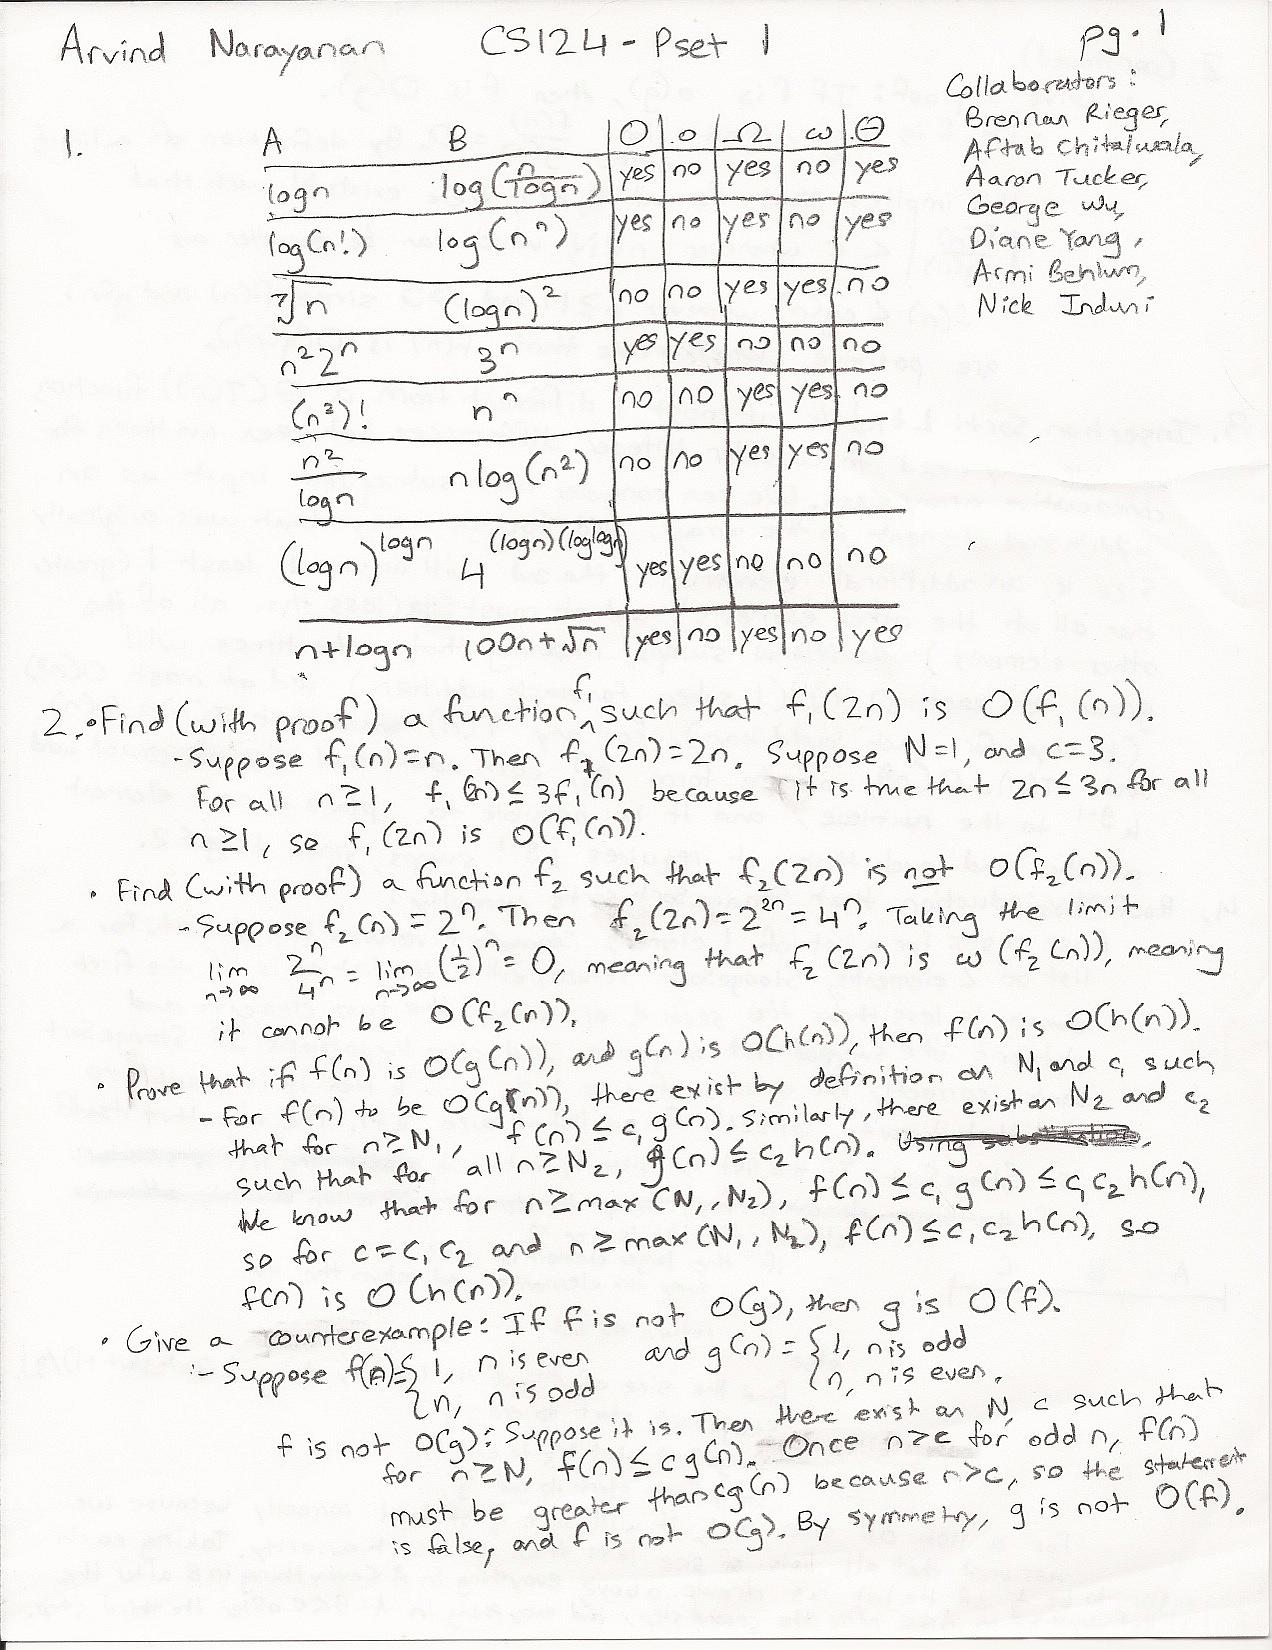 Arvind Narayanan CS124 - Pset 1 pg. 1
Collaborators:
Brennan Rieger,
Aftab Chitalwala,
Aaron Tucker,
George Wu,
Diane Yang,
Armi Behlum,
Nick Induni
1. A B O o Ω ω Θ
log n log(n/log n) yes no yes no yes
log(n!) log(n^n) yes no yes no yes
∛n (log n)^2 no no yes yes no
n^2 2^n 3^n yes yes no no no
(n^2)! n^n no no yes yes no
n^2/log n n log(n^2) no no yes yes no
(log n)^log n 4^(log n)(log log n) yes yes no no no
n + log n 100n + √n yes no yes no yes
2. • Find (with proof) a function f₁ such that f₁(2n) is O(f₁(n)).
- Suppose f₁(n) = n. Then f₁(2n) = 2n. Suppose N=1, and c=3.
For all n ≥ 1, f₁(2n) ≤ 3f₁(n) because it is true that 2n ≤ 3n for all
n ≥ 1, so f₁(2n) is O(f₁(n)).
• Find (with proof) a function f₂ such that f₂(2n) is not O(f₂(n)).
- Suppose f₂(n) = 2^n. Then f₂(2n) = 2^2n = 4^n. Taking the limit
lim n→∞ 2^n/4^n = lim n→∞ (1/2)^n = 0, meaning that f₂(2n) is ω(f₂(n)), meaning
it cannot be O(f₂(n)).
• Prove that if f(n) is O(g(n)), and g(n) is O(h(n)), then f(n) is O(h(n)).
- For f(n) to be O(g(n)), there exist by definition an N₁ and c₁ such
that for n ≥ N₁, f(n) ≤ c₁g(n). Similarly, there exist an N₂ and c₂
such that for all n ≥ N₂, g(n) ≤ c₂h(n). Using substitution,
We know that for n ≥ max(N₁, N₂), f(n) ≤ c₁g(n) ≤ c₁c₂h(n),
so for c = c₁c₂ and n ≥ max(N₁, N₂), f(n) ≤ c₁c₂h(n), so
f(n) is O(h(n)).
• Give a counterexample: If f is not O(g), then g is O(f).
- Suppose f(n) = { 1, n is even and g(n) = { 1, n is odd
n, n is odd n, n is even.
f is not O(g): Suppose it is. Then there exist an N, c such that
for n ≥ N, f(n) ≤ cg(n). Once n > c for odd n, f(n)
must be greater than cg(n) because n > c, so the statement
is false, and f is not O(g). By symmetry, g is not O(f).